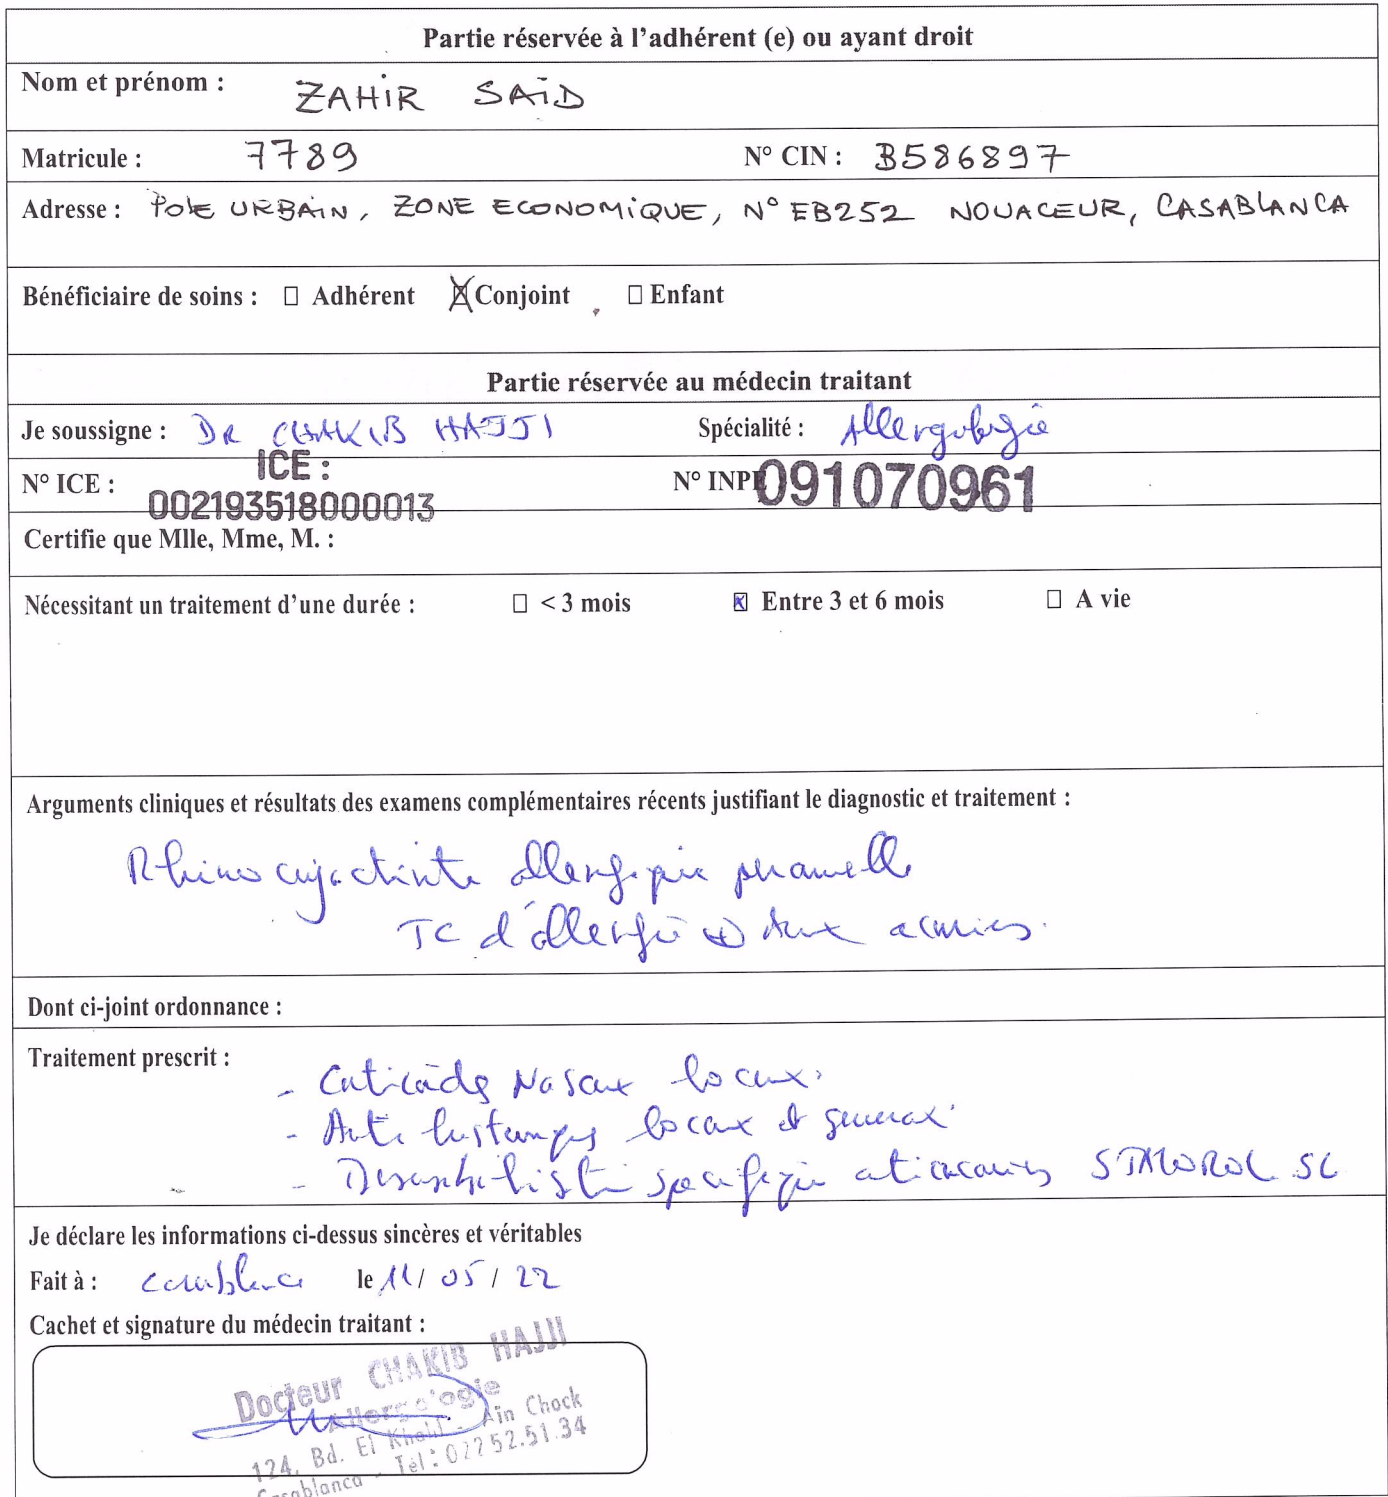 Partie réservée à l'adhérent (e) ou ayant droit
Nom et prénom : ZAHIR SAID
Matricule : 7789 N° CIN : B586897
Adresse : POLE URBAIN, ZONE ECONOMIQUE, N° EB252 NOUACEUR, CASABLANCA
Bénéficiaire de soins : ☐ Adhérent ☒ Conjoint ☐ Enfant
Partie réservée au médecin traitant
Je soussigne : DR CHAKIB HAJJI Spécialité : Allergologie
N° ICE : ICE : 002193518000013 N° INP 091070961
Certifie que Mlle, Mme, M. :
Nécessitant un traitement d'une durée : ☐ < 3 mois ☒ Entre 3 et 6 mois ☐ A vie
Arguments cliniques et résultats des examens complémentaires récents justifiant le diagnostic et traitement :
Rhino conjonctivite allergique perannuelle
TC d'allergie ⊕ aux acariens.
Dont ci-joint ordonnance :
Traitement prescrit :
- Corticoïdes Nasaux locaux.
- Anti histaminiques locaux et generaux.
- Desensibilisation specifique antiacariens STALORAL SL
Je déclare les informations ci-dessus sincères et véritables
Fait à : Casablanca le 11/ 05 / 22
Cachet et signature du médecin traitant :
Docteur CHAKIB HAJJI
Allergologie
124, Bd. El Khalil - Ain Chock
Casablanca - Tél : 022 52.51.34